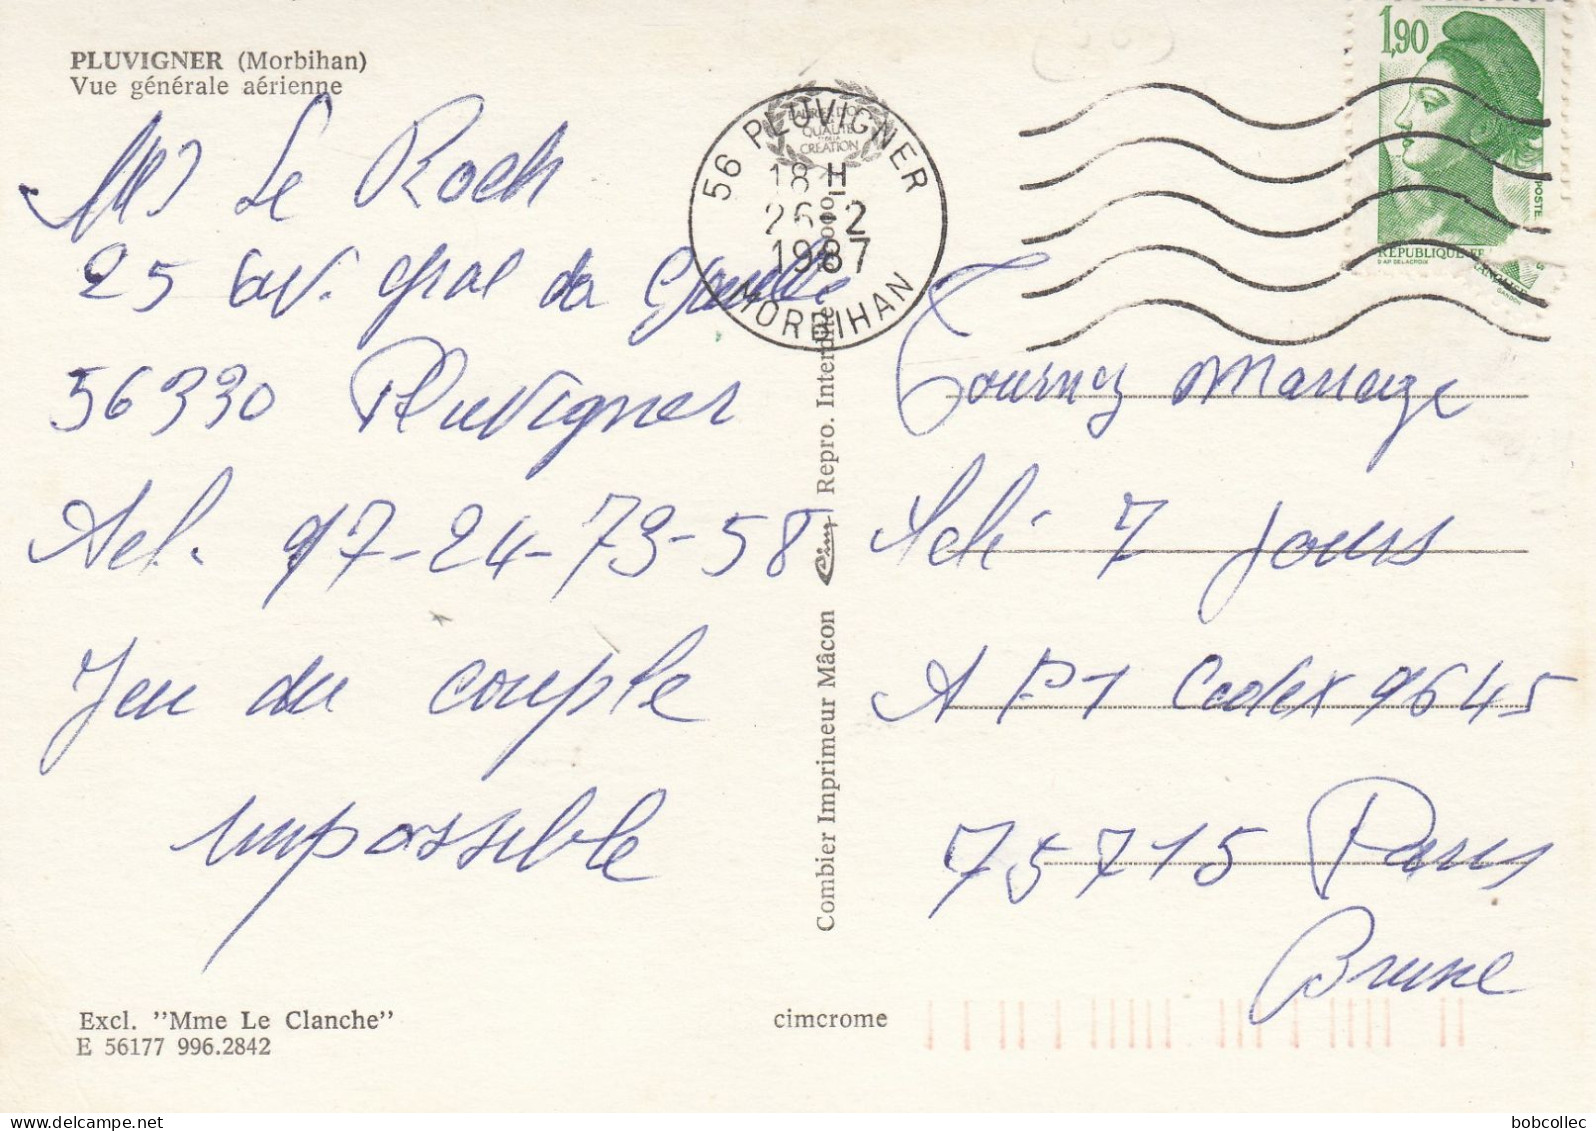 PLUVIGNER (Morbihan)
Vue générale aérienne
Le Roch
25 av. gral de Gaulle
56330 Pluvigner
Tel. 97-24-73-58
Jeu du couple
impossible
Excl. "Mme Le Clanche"
E 56177 996.2842
cimcrome
Combier Imprimeur Mâcon Cim Repro. Interdite
56 PLUVIGNER
18 H
26-2
1987
MORBIHAN
QUALITE
CREATION
1,90
POSTE
REPUBLIQUE
D'AP DELACROIX
GANDON
Tournez Mariage
Télé 7 Jours
A P1 Cedex 9645
75715 Paris
Brune
bobcollec